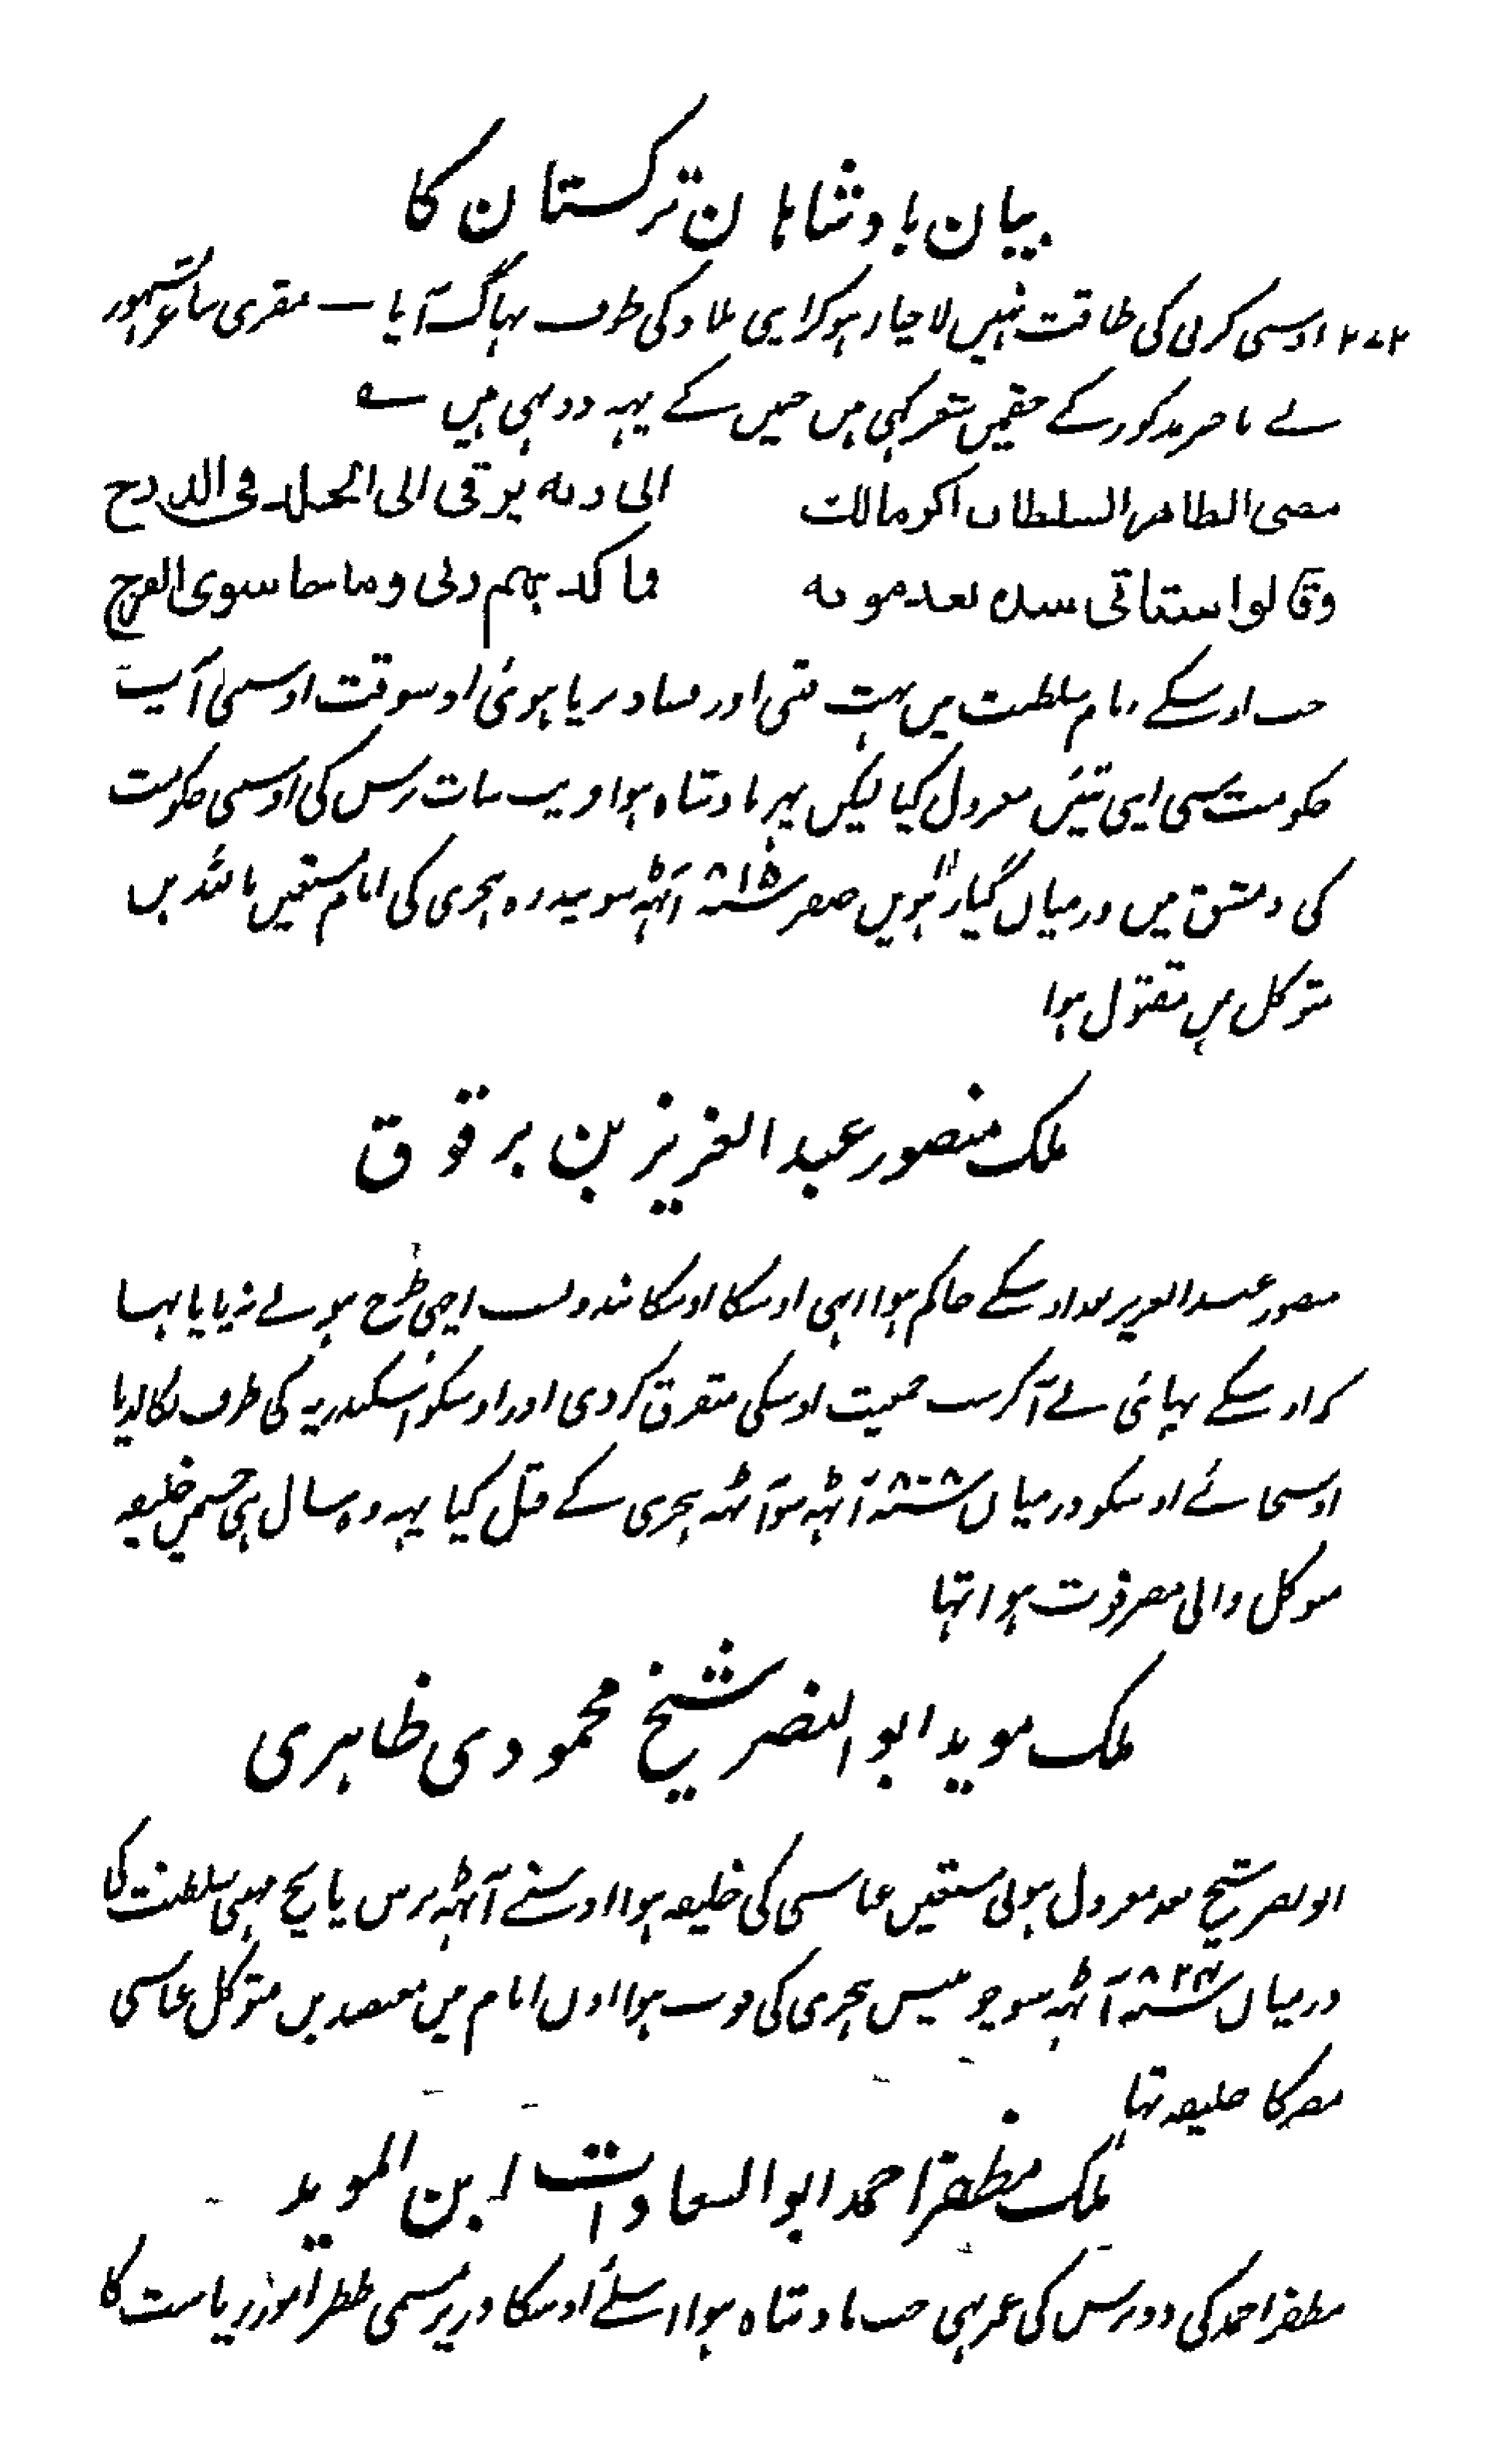 بیان بادشاہان ترکستان کا
۲۷۲ اوسی کرنی کی طاقت نہیں لاچار ہوکر اپنی بلاد کی طرف بہاگ آیا — مقری شاعر مشہور
نے ناصر مذکور کے حقمیں شعر کہی ہیں جنمیں کے یہہ دو بہی ہیں ؎
مضی الظاهر السلطان اکرم مالك     الی ربه یرقی الی الخلد فی الدرج
وقالوا ستاتی شدة بعد موته     فاکذبهم ربی وما جا سوی الفرج
جب اوسکے ایام سلطنت میں بہت فتنی اور فساد برپا ہوئی اوسوقت اوسنی آپ
حکومت سی اپنی تئیں معزول کیا لیکن پہر بادشاہ ہوا اور سات برس کی اوسی حکومت
کی دمشق میں درمیان گیارہویں صفر ۸۱۵؁ آٹہہ سو پندرہ ہجری کی ایام مستعین باللہ بن
متوکل میں مقتول ہوا
ملک منصور عبد العزیز بن برقوق
منصور عبد العزیز بعد اوسکے حاکم ہوا ابہی اوسکا اوسکا بندوبست اچہی طرح ہونے نہ پایا تہا
کہ اوسکے بہائی نے آکر سب جمعیت اوسکی متفرق کردی اور اوسکو اسکندریہ کی طرف نکالدیا
اوسی جائے اوسکو درمیان ۸۰۸؁ آٹہہ سو آٹہہ ہجری کے قتل کیا یہہ وہ سال ہی جسمیں خلیفہ
متوکل والی مصر فوت ہوا تہا
ملک موید ابو النصر شیخ محمودی ظاہری
ابو نصر شیخ بعد معزول ہونی مستعین عباسی کی خلیفہ ہوا اوسنے آٹہہ برس پانچ مہینی سلطنت کی
درمیان ۸۲۴؁ آٹہہ سو چوبیس ہجری کی فوت ہوا اون ایام میں معتضد بن متوکل عباسی
مصر کا خلیفہ تہا
ملک مظفر احمد ابو السعادات ابن الموید
مظفر احمد کی دو برس کی عمر تہی جب بادشاہ ہوا اسلئے اوسکا وزیر مسمی ططر امور ریاست کا